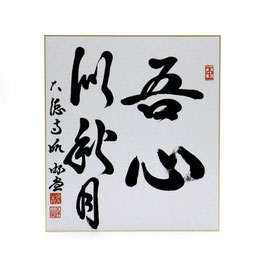 吾心
似秋月
大徳寺